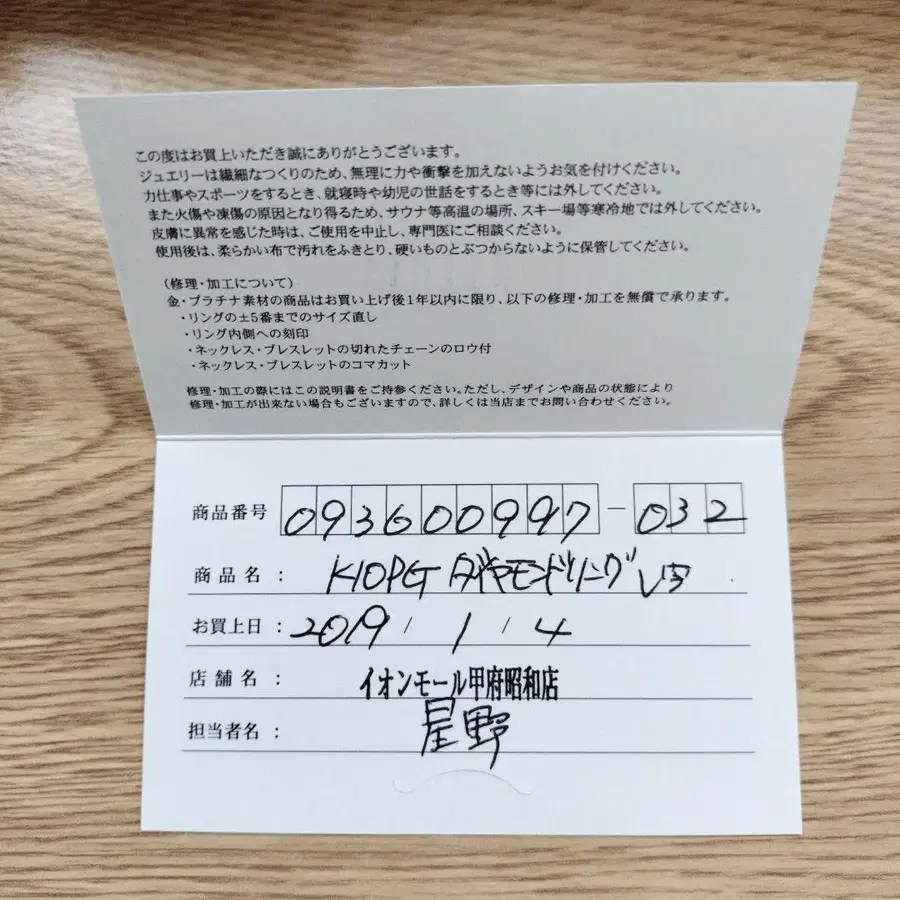 この度はお買上いただき誠にありがとうございます。
ジュエリーは繊細なつくりのため、無理に力や衝撃を加えないようお気を付けください。
力仕事やスポーツをするとき、就寝時や幼児の世話をするとき等には外してください。
また火傷や凍傷の原因となり得るため、サウナ等高温の場所、スキー場等寒冷地では外してください。
皮膚に異常を感じた時は、ご使用を中止し、専門医にご相談ください。
使用後は、柔らかい布で汚れをふきとり、硬いものとぶつからないように保管してください。
(修理・加工について)
金・プラチナ素材の商品はお買い上げ後1年以内に限り、以下の修理・加工を無償で承ります。
・リングの±5番までのサイズ直し
・リング内側への刻印
・ネックレス・ブレスレットの切れたチェーンのロウ付
・ネックレス・ブレスレットのコマカット
修理・加工の際にはこの説明書をご持参ください。ただし、デザインや商品の状態により
修理・加工が出来ない場合もございますので、詳しくは当店までお問い合わせください。
商品番号 093600997-032
商品名: K10PG ダイヤモンドリング
お買上日: 2019/1/4
店舗名: イオンモール甲府昭和店
担当者名: 星野